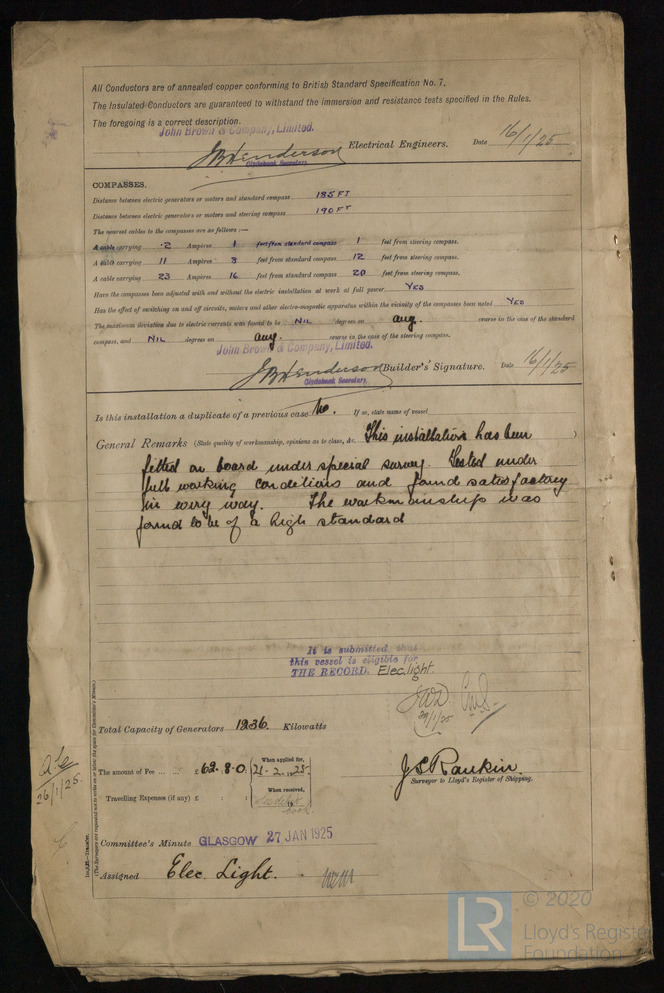 All Conductors are of annealed copper conforming to British Standard Specification No. 7.
The Insulated Conductors are guaranteed to withstand the immersion and resistance tests specified in the Rules.
The foregoing is a correct description.
John Brown & Company, Limited.
JB Henderson Electrical Engineers. Date 16/1/25
Clydebank Secretary.
COMPASSES.
Distance between electric generators or motors and standard compass 185 FT
Distance between electric generators or motors and steering compass 190 FT
The nearest cables to the compasses are as follows:—
A cable carrying .2 Ampères 1 feet from standard compass 1 feet from steering compass.
A cable carrying 11 Ampères 8 feet from standard compass 12 feet from steering compass.
A cable carrying 23 Ampères 16 feet from standard compass 20 feet from steering compass.
Have the compasses been adjusted with and without the electric installation at work at full power YES
Has the effect of switching on and off circuits, motors and other electro-magnetic apparatus within the vicinity of the compasses been noted YES
The maximum deviation due to electric currents was found to be NIL degrees on any. course in the case of the standard
compass, and NIL degrees on any. course in the case of the steering compass.
John Brown & Company, Limited.
JB Henderson Builder's Signature. Date 16/1/25
Clydebank Secretary.
Is this installation a duplicate of a previous case No. If so, state name of vessel
General Remarks (State quality of workmanship, opinions as to class, &c. This installation has been )
fitted on board under special survey. Tested under
full working conditions and found satisfactory
in every way. The workmanship was
found to be of a high standard
It is submitted that
this vessel is eligible for
THE RECORD. Elec. light.
29/1/25
Total Capacity of Generators 1236 Kilowatts
The amount of Fee ... £ 62.8.0. When applied for, 21.2.1925.
When received,
Travelling Expenses (if any) £
J S Rankin.
Surveyor to Lloyd's Register of Shipping.
26/1/25.
Committee's Minute GLASGOW 27 JAN 1925
Assigned Elec. Light.
(The Surveyors are requested not to write on or below the space for Committee's Minute.)
LR
© 2020
Lloyd's Register
Foundation